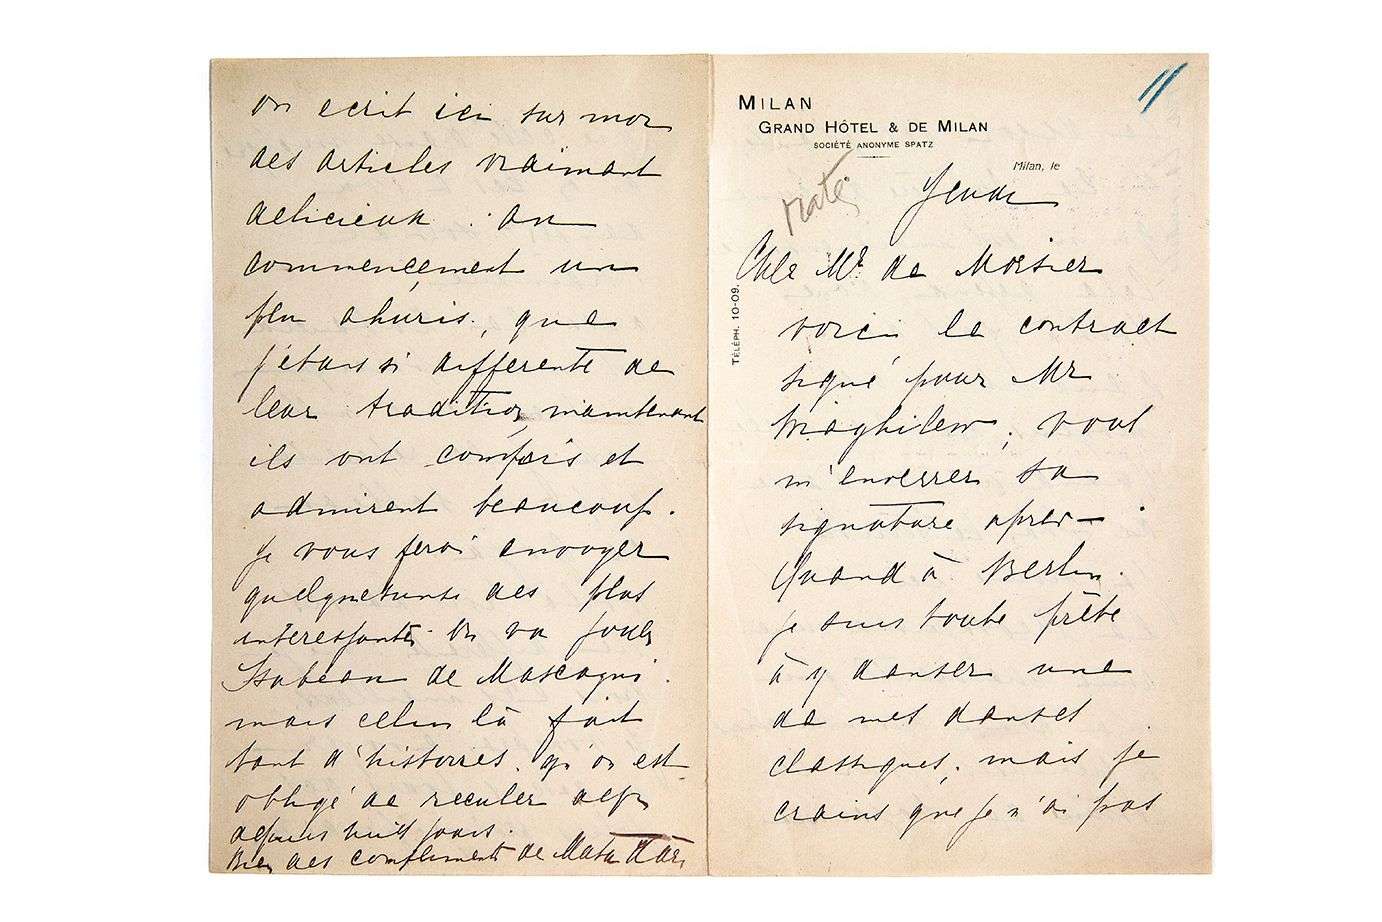 on ecrit ici sur moi
des articles vraimant
delicieux. On
commencement un
peu ahuris, que
j'etais si differente de
leur tradition, maintenant
ils ont compris et
admirent beaucoup.
Je vous ferai envoyer
des plus
interessants. On va jouer
Isabeau de Mascagni.
mais celui là fait
tant d'histoires. qu'on est
obligé de reculer
depuis huit jours.
Bien des compliments de Mata Hari
11
MILAN
GRAND HÔTEL & DE MILAN
SOCIÉTÉ ANONYME SPATZ
Milan, le
Jeudi
TÉLÉPH. 10-09.
Cher Mr. de
voici le contract
signé pour Mr
vous
m'enverrez sa
signature après—
Quand à Berlin.
je suis toute prête
à y danser une
de mes danses
classiques, mais je
crains que je n'ai pas